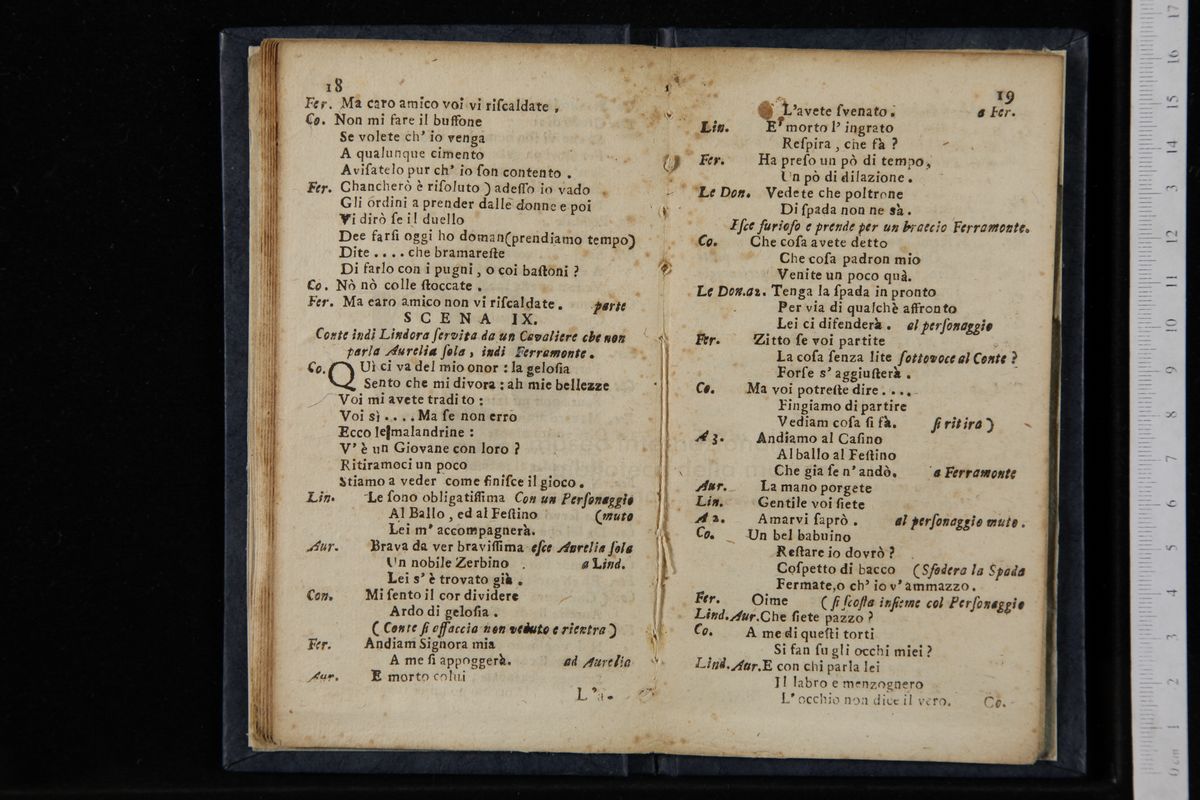 18
Fer. Ma caro amico voi vi riſcaldate.
Co. Non mi fare il buffone
Se volete ch' io venga
A qualunque cimento
Aviſatelo pur ch' io ſon contento .
Fer. Chancherò è riſoluto ) adeſſo io vado
Gli ordini a prender dalle donne e poi
Vi dirò ſe il duello
Dee farſi oggi ho doman(prendiamo tempo)
Dite .... che bramareſte
Di farlo con i pugni, o coi baſtoni ?
Co. Nò nò colle ſtoccate .
Fer. Ma caro amico non vi riſcaldate. parte
SCENA IX.
Conte indi Lindora ſervita da un Cavaliere che non
parla Aurelia ſola, indi Ferramonte.
Co. QUì ci va del mio onor : la geloſia
Sento che mi divora : ah mie bellezze
Voi mi avete tradito :
Voi sì .... Ma ſe non erro
Ecco le malandrine :
V' è un Giovane con loro ?
Ritiramoci un poco
Stiamo a veder come finiſce il gioco.
Lin. Le ſono obligatiſſima Con un Perſonaggio
Al Ballo, ed al Feſtino (muto
Lei m' accompagnerà.
Aur. Brava da ver braviſſima eſce Aurelia ſola
Un nobile Zerbino . a Lind.
Lei s' è trovato già .
Con. Mi ſento il cor dividere
Ardo di geloſia .
( Conte ſi affaccia non veduto e rientra )
Fer. Andiam Signora mia
A me ſi appoggerà. ad Aurelia
Aur. E morto colui
L'a-
19
L'avete ſvenato. a Fer.
Lin. E' morto l' ingrato
Reſpira, che fà ?
Fer. Ha preſo un pò di tempo,
Un pò di dilazione .
Le Don. Vedete che poltrone
Di ſpada non ne sà .
Iſce furioſo e prende per un braccio Ferramonte.
Co. Che coſa avete detto
Che coſa padron mio
Venite un poco quà.
Le Don.a2. Tenga la ſpada in pronto
Per via di qualchè affronto
Lei ci difenderà . al perſonaggio
Fer. Zitto ſe voi partite
La coſa ſenza lite ſottovoce al Conte ?
Forſe s' aggiuſterà .
Co. Ma voi potreſte dire ....
Fingiamo di partire
Vediam coſa ſi fà. ſi ritira )
A 3. Andiamo al Caſino
Al ballo al Feſtino
Che gia ſe n' andò. a Ferramonte
Aur. La mano porgete
Lin. Gentile voi ſiete
A 2. Amarvi ſaprò . al perſonaggio muto .
Co. Un bel babuino
Reſtare io dovrò ?
Coſpetto di bacco (Sfodera la Spada
Fermate,o ch' io v' ammazzo.
Fer. Oime (ſi ſcoſta inſieme col Perſonaggio
Lind.Aur.Che ſiete pazzo ?
Co. A me di queſti torti
Si fan ſu gli occhi miei ?
Lind.Aur.E con chi parla lei
Il labro e menzognero
L' occhio non dice il vero. Co.